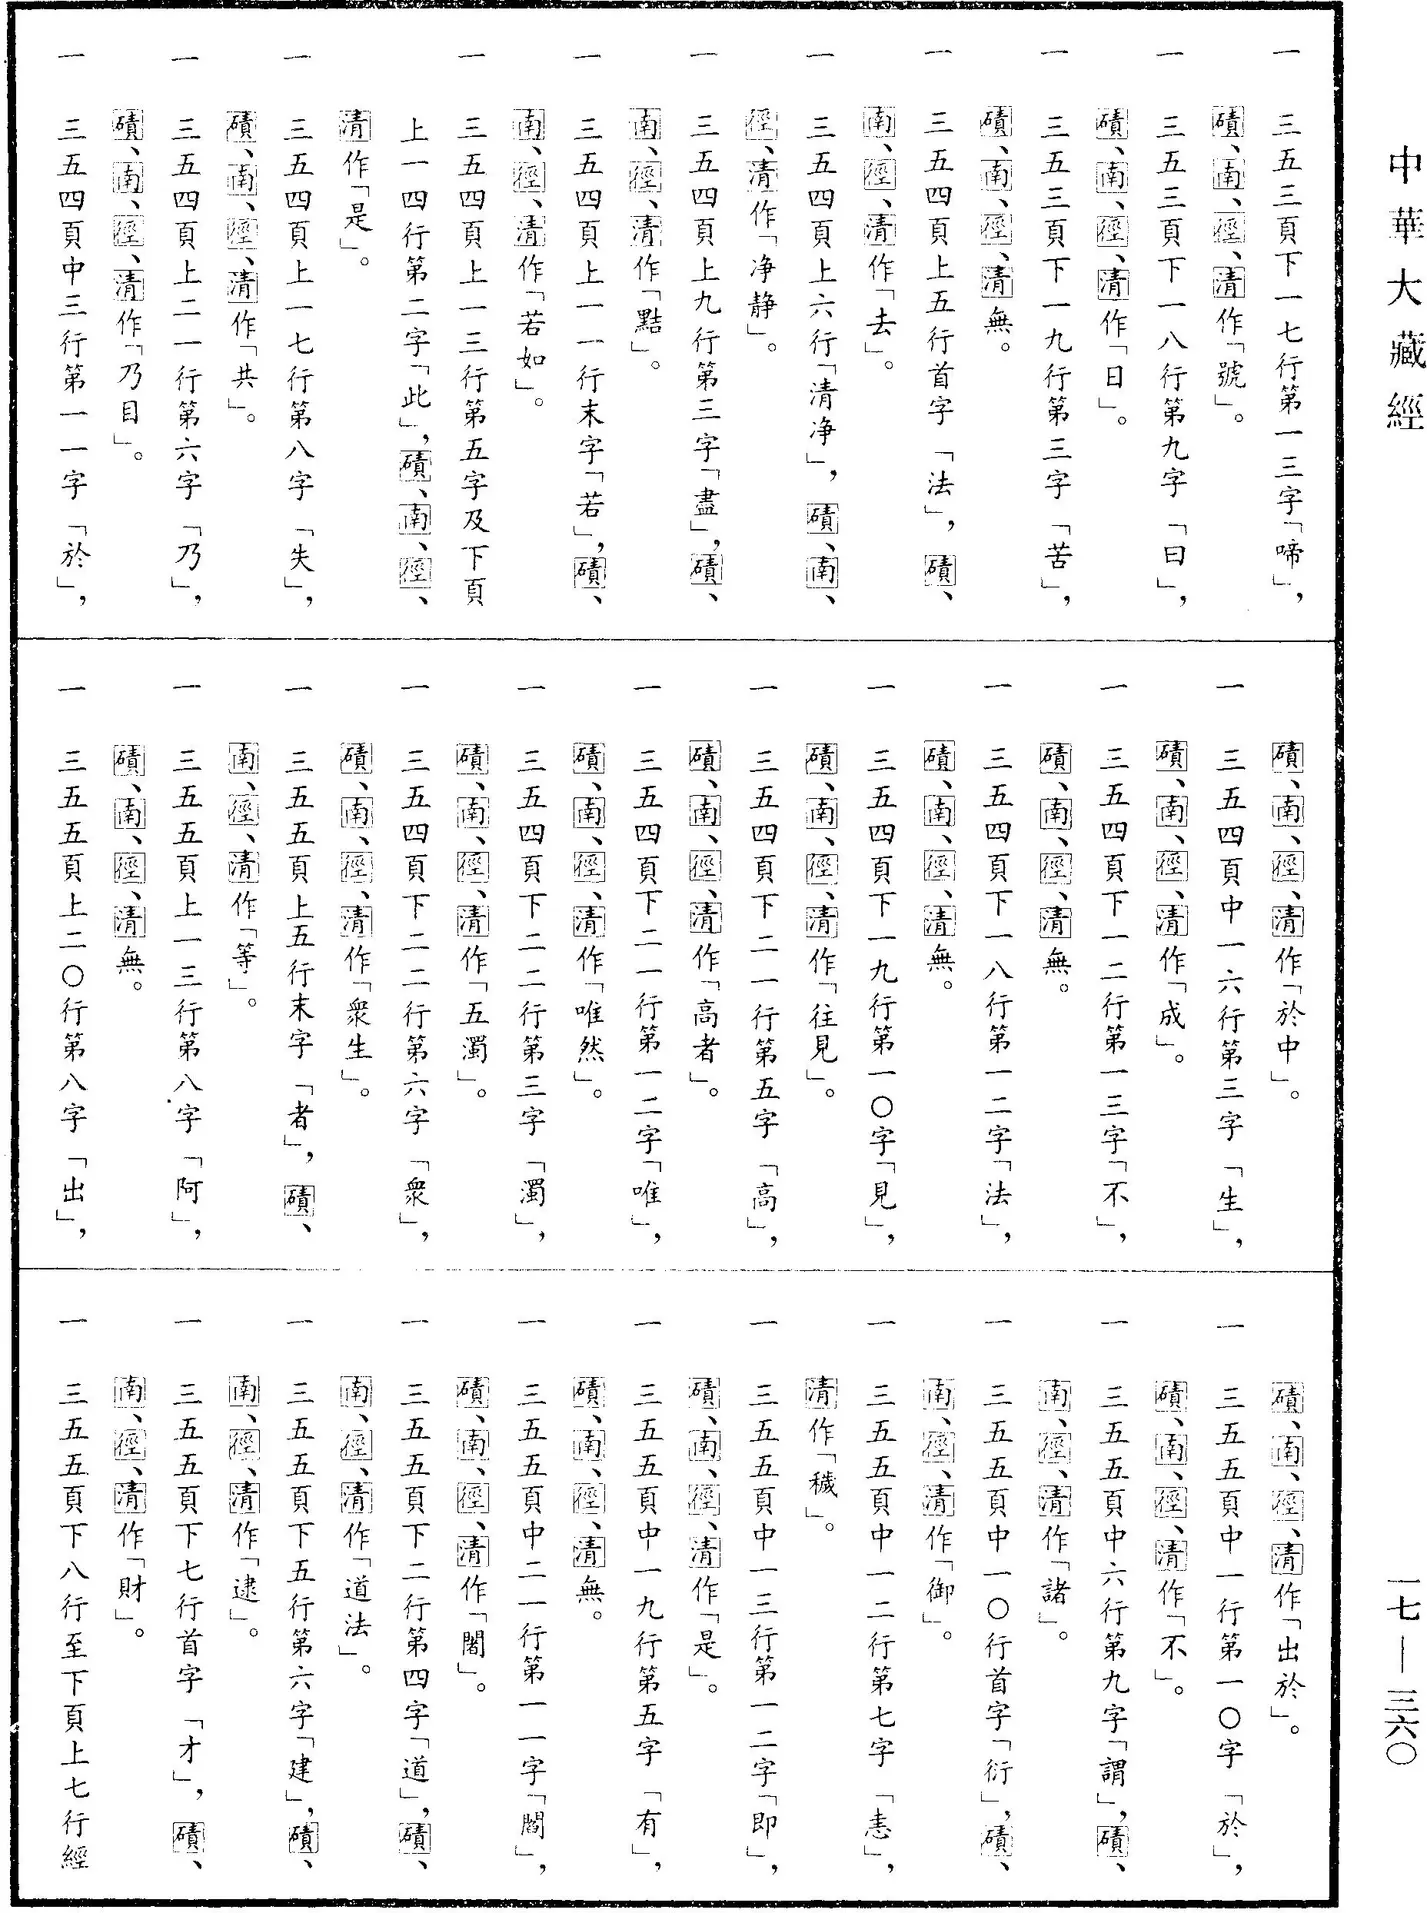 中華大藏經
一 三五三頁下一七行第一三字「啼」，
磧、南、徑、清作「號」。
一 三五三頁下一八行第九字「曰」，
磧、南、徑、清作「日」。
一 三五三頁下一九行第三字「苦」，
磧、南、徑、清無。
一 三五四頁上五行首字「法」，磧、
南、徑、清作「去」。
一 三五四頁上六行「清净」，磧、南、
徑、清作「净静」。
一 三五四頁上九行第三字「盡」，磧、
南、徑、清作「黠」。
一 三五四頁上一一行末字「若」，磧、
南、徑、清作「若如」。
一 三五四頁上一三行第五字及下頁
上一四行第二字「此」，磧、南、徑、
清作「是」。
一 三五四頁上一七行第八字「失」，
磧、南、徑、清作「共」。
一 三五四頁上二一行第六字「乃」，
磧、南、徑、清作「乃目」。
一 三五四頁中三行第一一字「於」，
磧、南、徑、清作「於中」。
一 三五四頁中一六行第三字「生」，
磧、南、徑、清作「成」。
一 三五四頁下一二行第一三字「不」，
磧、南、徑、清無。
一 三五四頁下一八行第一二字「法」，
磧、南、徑、清無。
一 三五四頁下一九行第一〇字「見」，
磧、南、徑、清作「往見」。
一 三五四頁下二一行第五字「高」，
磧、南、徑、清作「高者」。
一 三五四頁下二一行第一二字「唯」，
磧、南、徑、清作「唯然」。
一 三五四頁下二二行第三字「濁」，
磧、南、徑、清作「五濁」。
一 三五四頁下二二行第六字「衆」，
磧、南、徑、清作「衆生」。
一 三五五頁上五行末字「者」，磧、
南、徑、清作「等」。
一 三五五頁上一三行第八字「阿」，
磧、南、徑、清無。
一 三五五頁上二〇行第八字「出」，
磧、南、徑、清作「出於」。
一 三五五頁中一行第一〇字「於」，
磧、南、徑、清作「不」。
一 三五五頁中六行第九字「謂」，磧、
南、徑、清作「諸」。
一 三五五頁中一〇行首字「衍」，磧、
南、徑、清作「御」。
一 三五五頁中一二行第七字「恚」，
清作「穢」。
一 三五五頁中一三行第一二字「即」，
磧、南、徑、清作「是」。
一 三五五頁中一九行第五字「有」，
磧、南、徑、清無。
一 三五五頁中二一行第一一字「閻」，
磧、南、徑、清作「闍」。
一 三五五頁下二行第四字「道」，磧、
南、徑、清作「道法」。
一 三五五頁下五行第六字「建」，磧、
南、徑、清作「逮」。
一 三五五頁下七行首字「才」，磧、
南、徑、清作「財」。
一 三五五頁下八行至下頁上七行經
一七—三六〇